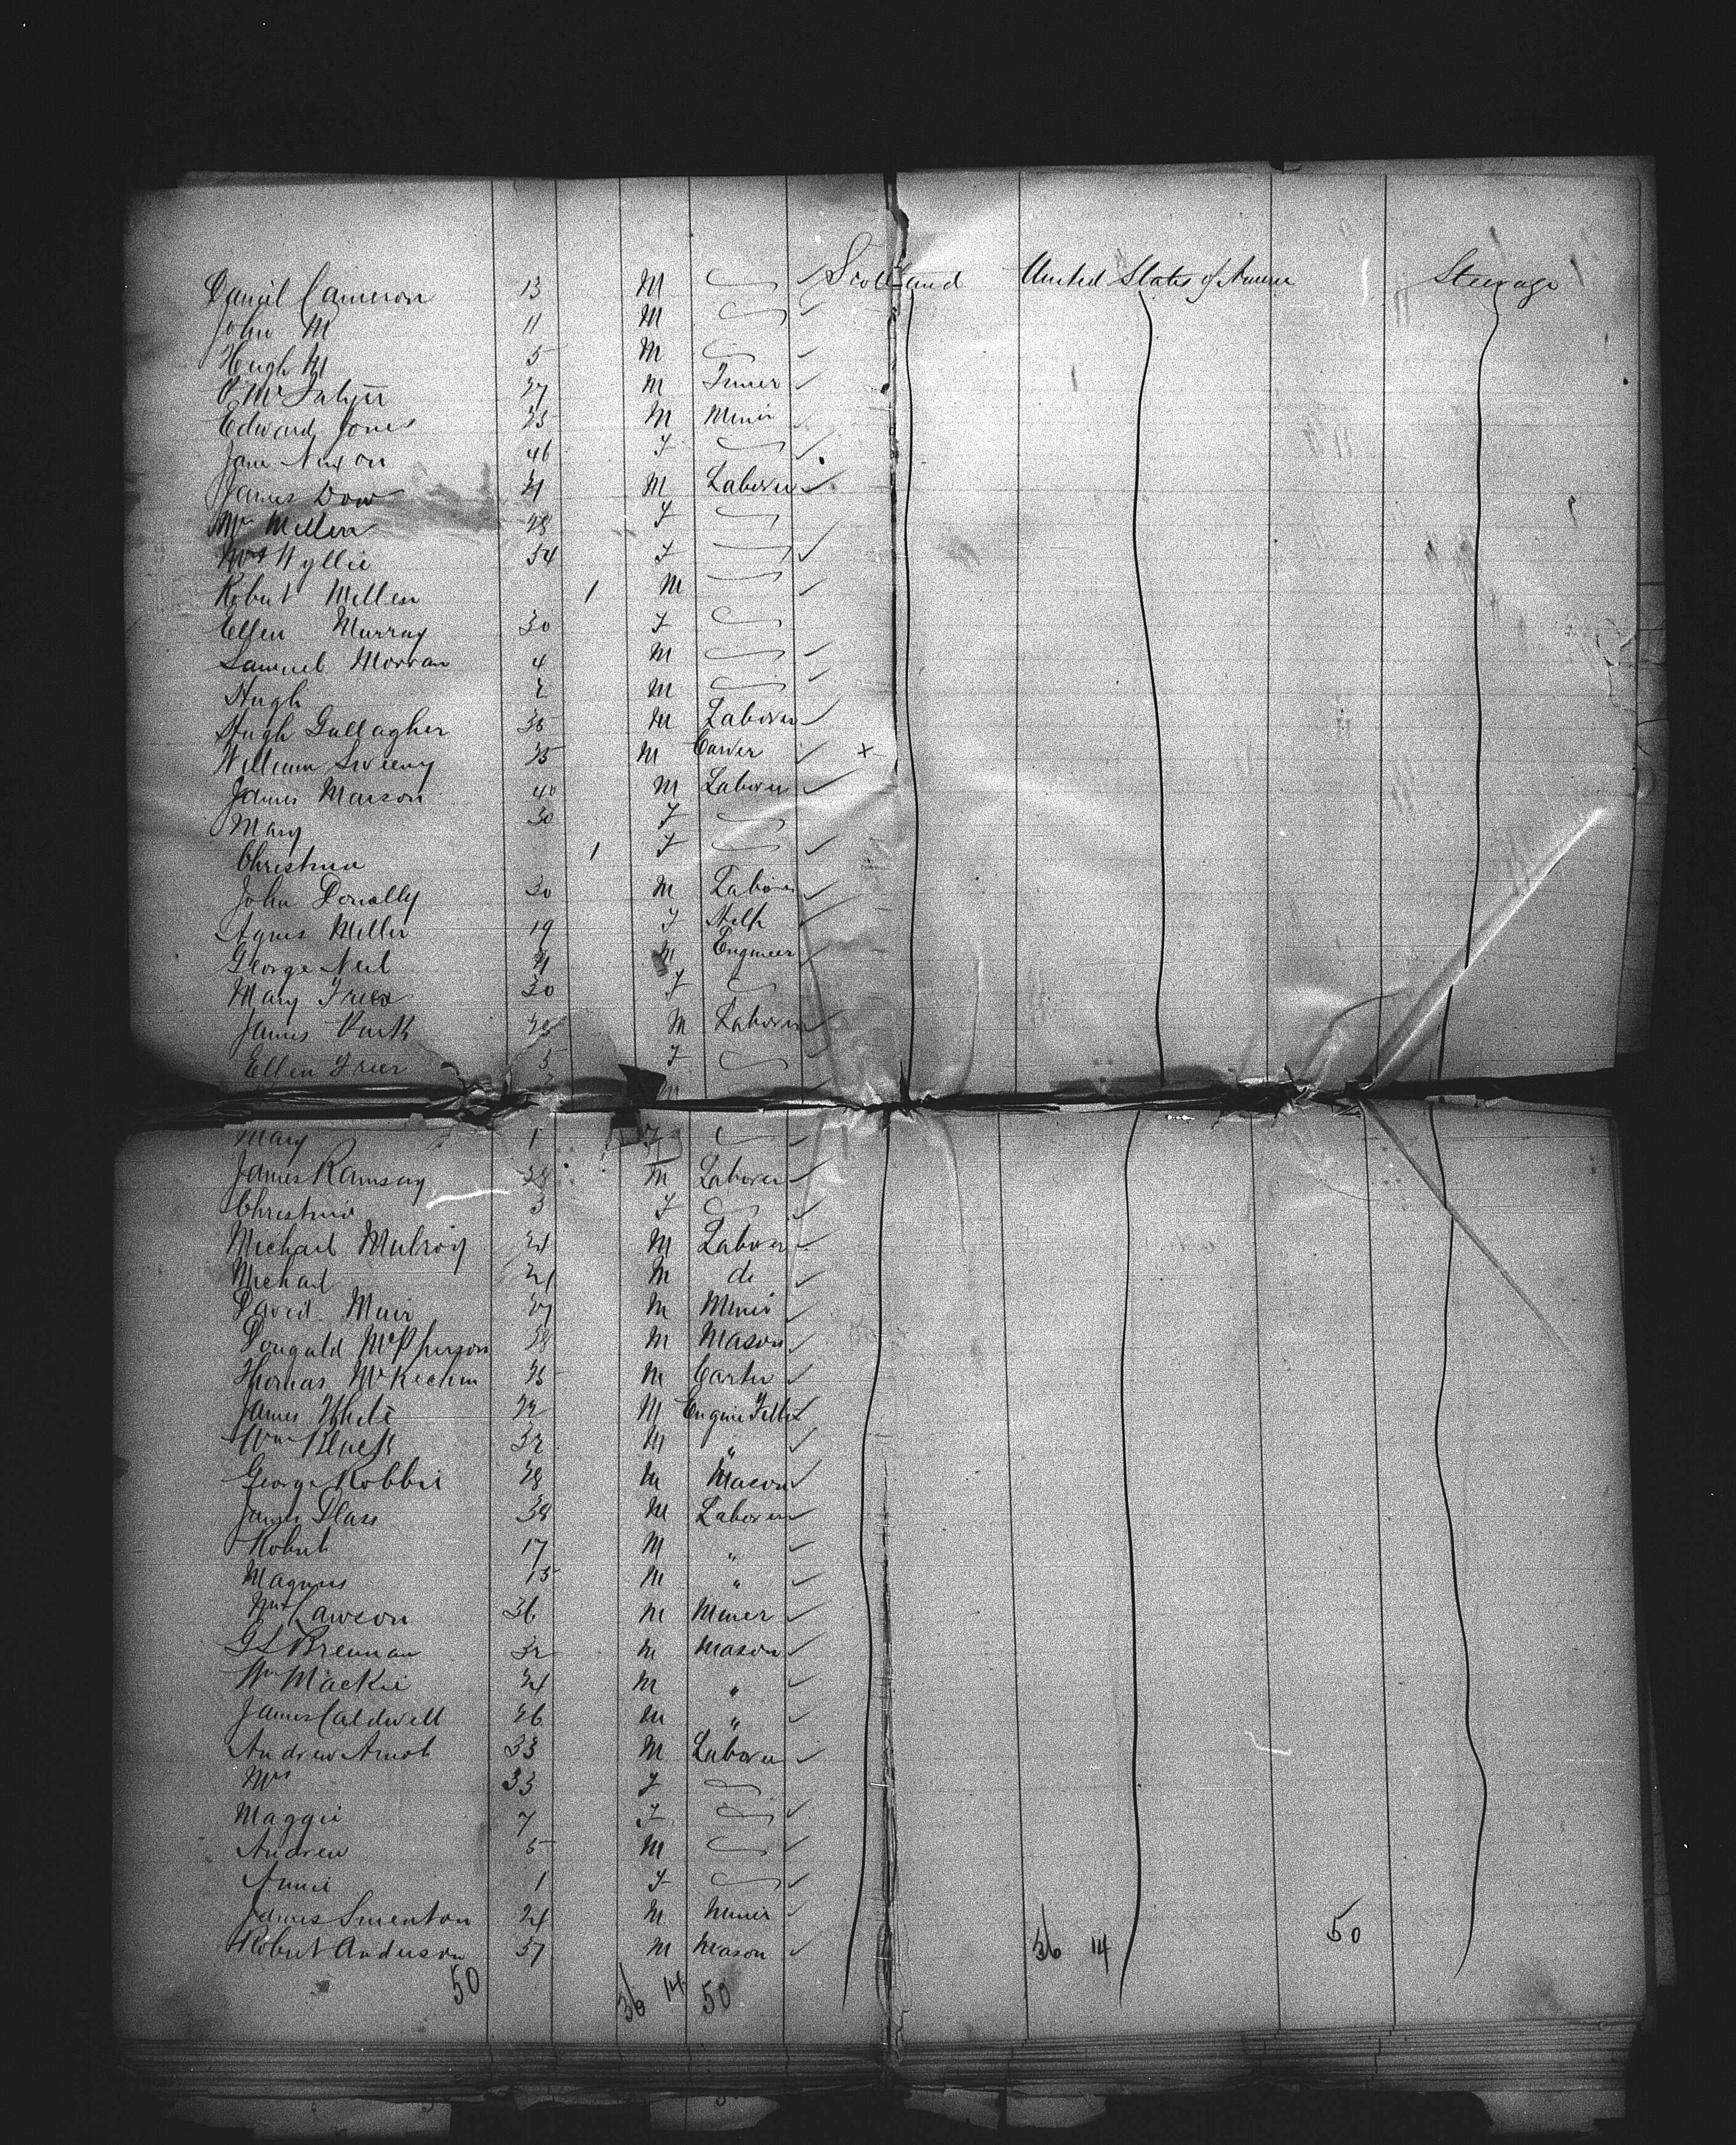 Daniel Cameron 13 M Scotland United States of America Steerage
John M 11 M
Hugh M 5 M
27 M
Edward Jones 25 M Miner
Jane Nixon 46 F
James Dow 21 M Laborer
Mrs Millen 28 F
Mrs Wyllie 54 F
Robert Millen 1 M
Ellen Murray 30 F
Samuel Morran 4 M
Hugh 2 M
Hugh Gallagher 35 M Laborer
William Sweeny 25 M Carver X
James Maison 40 M Laborer
Mary 30 F
Christina 1 F
John Donally 30 M Laborer
Agnes Miller 19 F Help
George Neil 21 M Engineer
Mary Freer 30 F
James Park M Laborer
Ellen Freer 5 F
M
Mary 1 F
James Ramsay 28 M Laborer
Christina 3 F
Michael Mulroy 24 M Laborer
Michael 21 M do
David Muir 27 M Miner
Dougald McPherson 28 M Mason
Thomas McKechin 25 M Carter
James White 22 M Engine Fitter
Wm 32 M "
George Robbie 28 M Mason
Glass 38 M Laborer
Robert 17 M "
Magnus 15 M "
Lawson 36 M Miner
G L Brennan 32 M Mason
Wm Mackie 24 M "
James Caldwell 26 M "
Andrew Arnot 33 M Laborer
Mrs 33 F
Maggie 7 F
Andrew 5 M
Annie 1 F
James Smenton 24 M Miner
Robert Anderson 37 M Mason 36 14 50
50 36 14 50